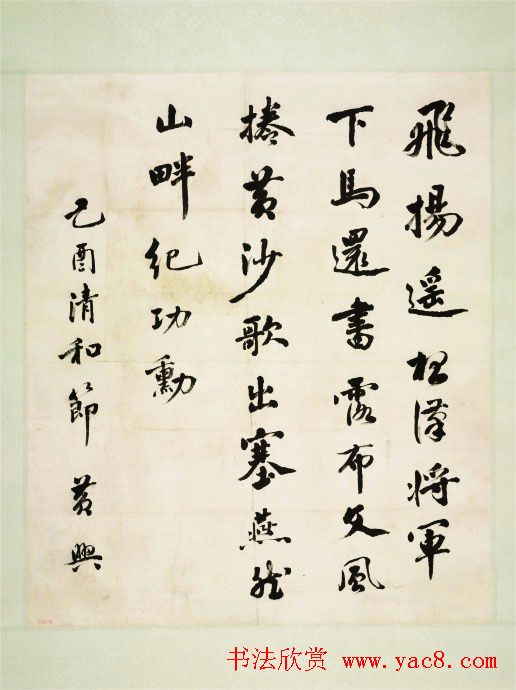 飛揚遥想漢將軍
下馬還書露布文風
捲黄沙歌出塞燕然
山畔紀功勳
己酉清和節 黄興
书法欣赏 www.yac8.com